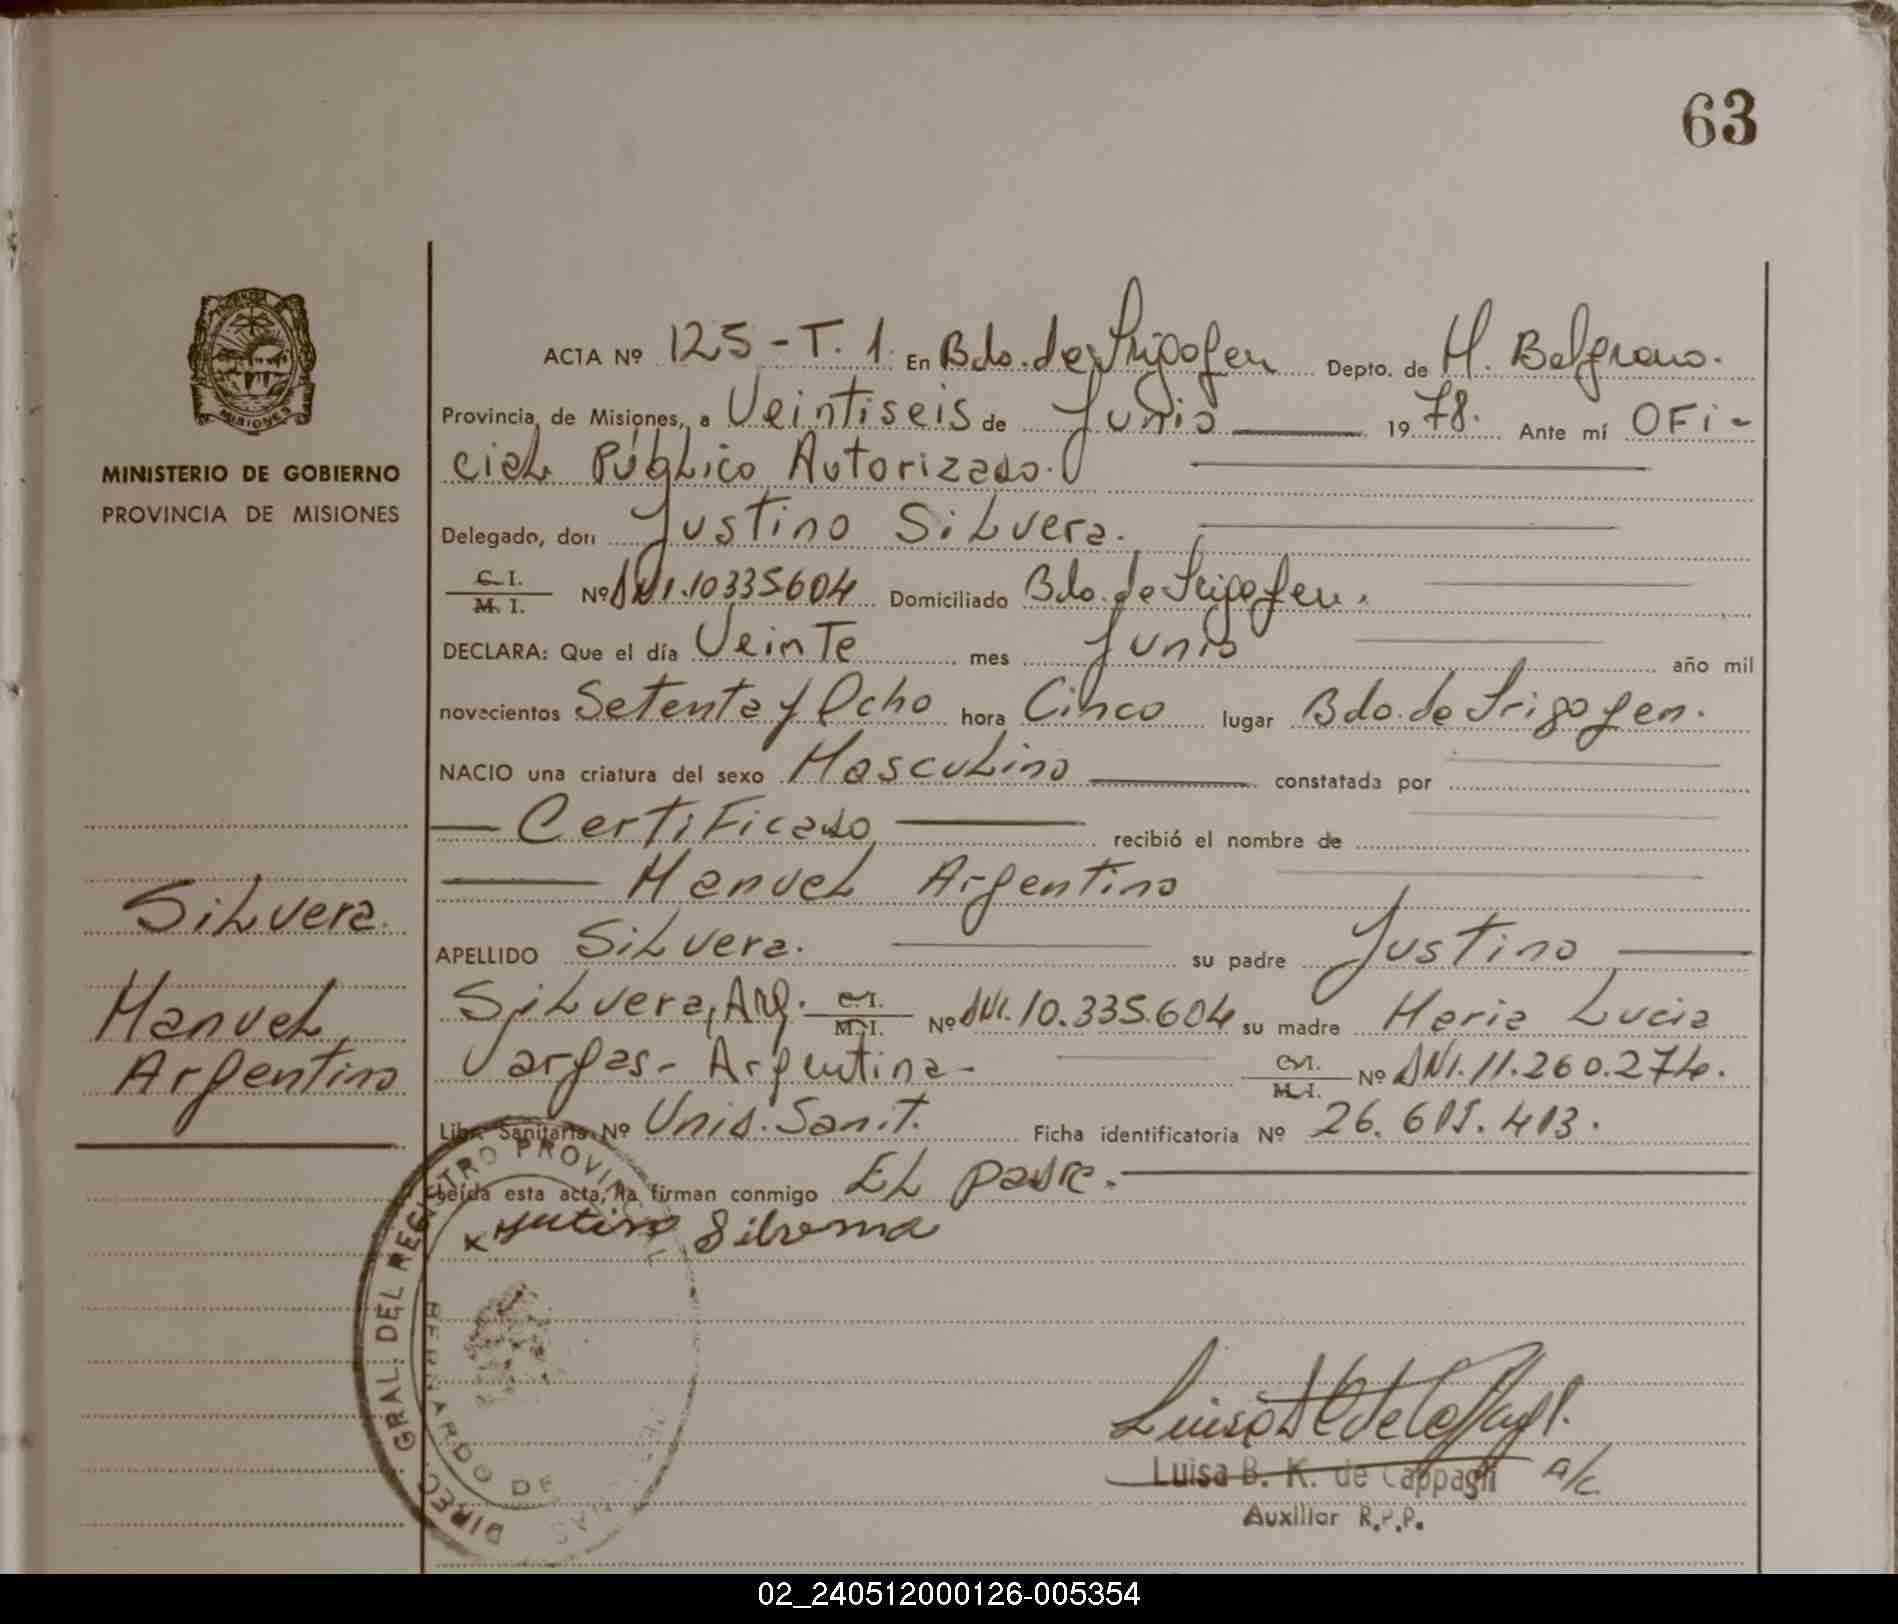 63
MINISTERIO DE GOBIERNO
PROVINCIA DE MISIONES
ACTA Nº 125 - T. 1. En Bdo. de Irigoyen Depto. de M. Belgrano.
Provincia de Misiones, a Veintiseis de Junio 1978. Ante mí OFi-
cial Público Autorizado.
Delegado, don Justino Silvera.
C. I. / M. I. Nº DNI. 10335604 Domiciliado Bdo. de Irigoyen.
DECLARA: Que el día Veinte mes Junio año mil
novecientos Setenta y Ocho hora Cinco lugar Bdo. de Irigoyen.
NACIO una criatura del sexo Masculino constatada por
Certificado recibió el nombre de
Manuel Argentino
APELLIDO Silvera. su padre Justino
Silvera, Arg. C.I. / M.I. Nº DNI. 10.335.604 su madre Maria Lucia
Vargas - Argentina - C.I. / M.I. Nº DNI. 11.260.274.
Libr. Sanitaria Nº Unid. Sanit. Ficha identificatoria Nº 26.615.413.
Leída esta acta, la firman conmigo El padre.
x Justino Silvema
Silvera.
Manuel
Argentino
DIREC. GRAL. DEL REGISTRO PROVINCIAL
BERNARDO DE
Luisa B. K. de Cappagli a/c
Auxiliar R.P.P.
02_240512000126-005354